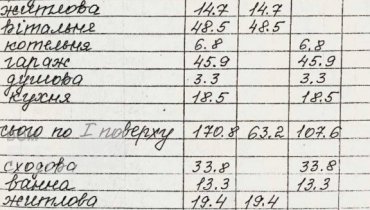 житлова 14.7 14.7
вітальня 48.5 48.5
котельня 6.8 6.8
гараж 45.9 45.9
душова 3.3 3.3
кухня 18.5 18.5
сього по I поверху 170.8 63.2 107.6
сходова 33.8 33.8
ванна 13.3 13.3
житлова 19.4 19.4